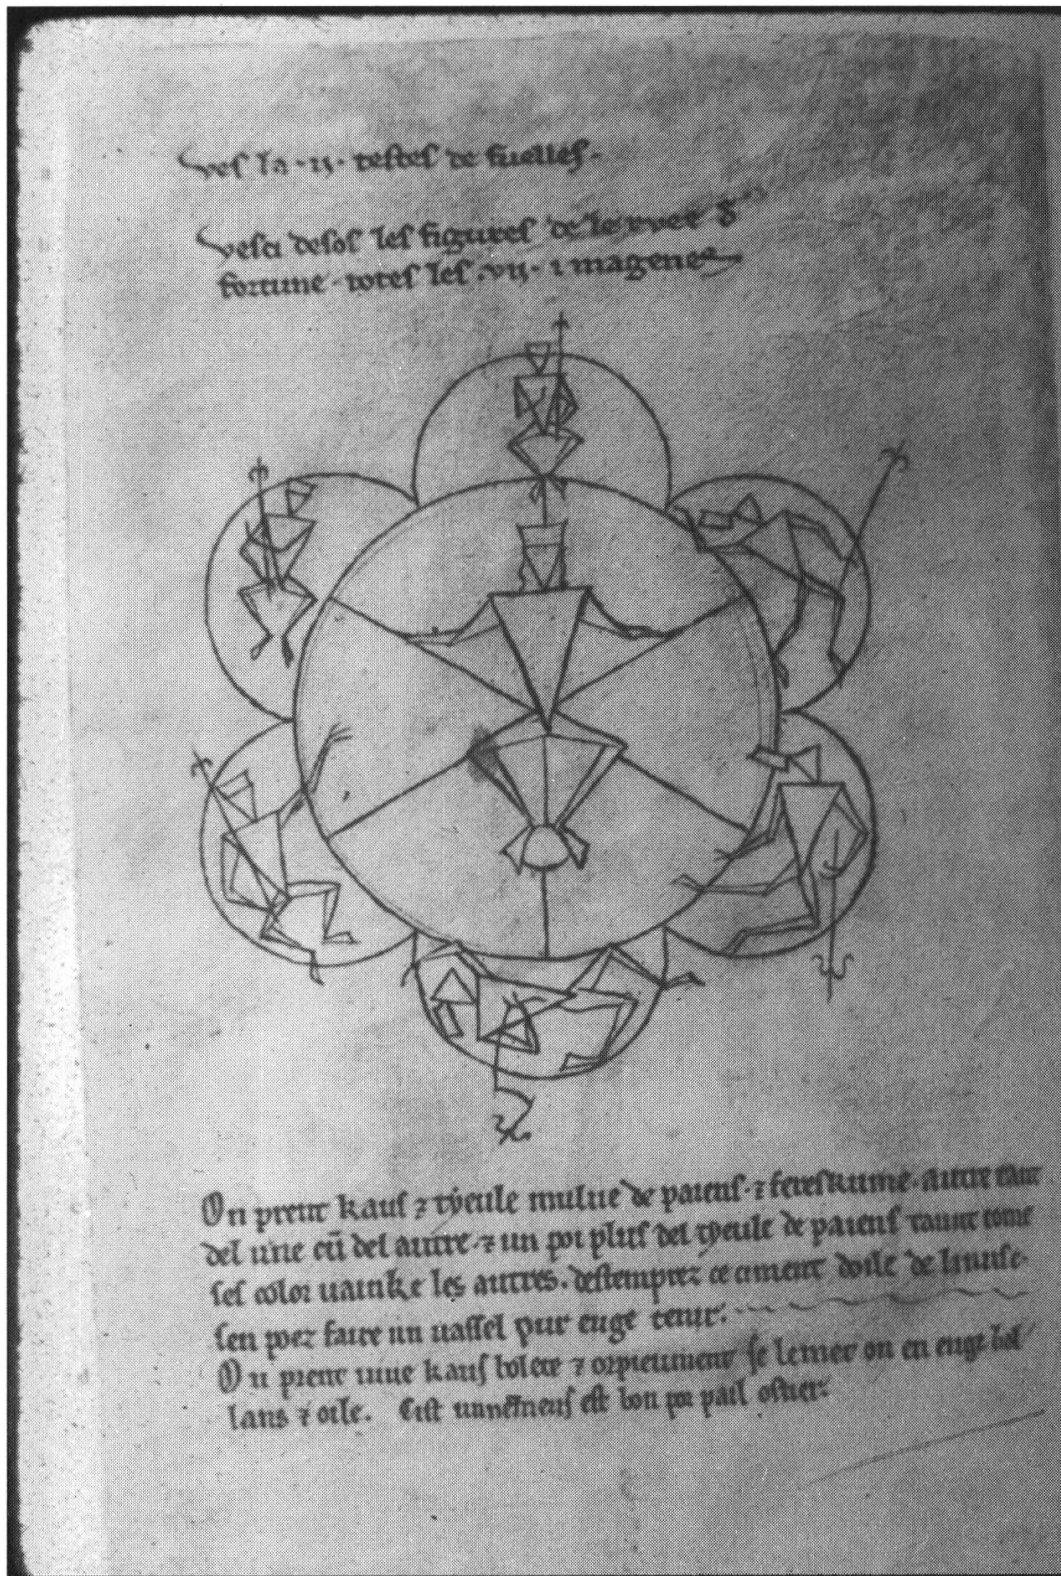 vesla .ij. testes de fuelles.
vesci desos les figures de le ruee d
fortune totes les .vij. imagenes
On prent kaus ⁊ tyeule mulue de paiens. ⁊ fereskume. autre tant
del une cū del autre. ⁊ un poi plus del tyeule de paiens tannt come
ses color vainke les autres. destemprez ce ciment doile de linuse.
sen poez faire un vassel pur euge tenir.
On prent vive kaus bolete ⁊ orpieument se lemet on en euge bol
lans ⁊ oile. Cist unnemens est bon por pail oster.